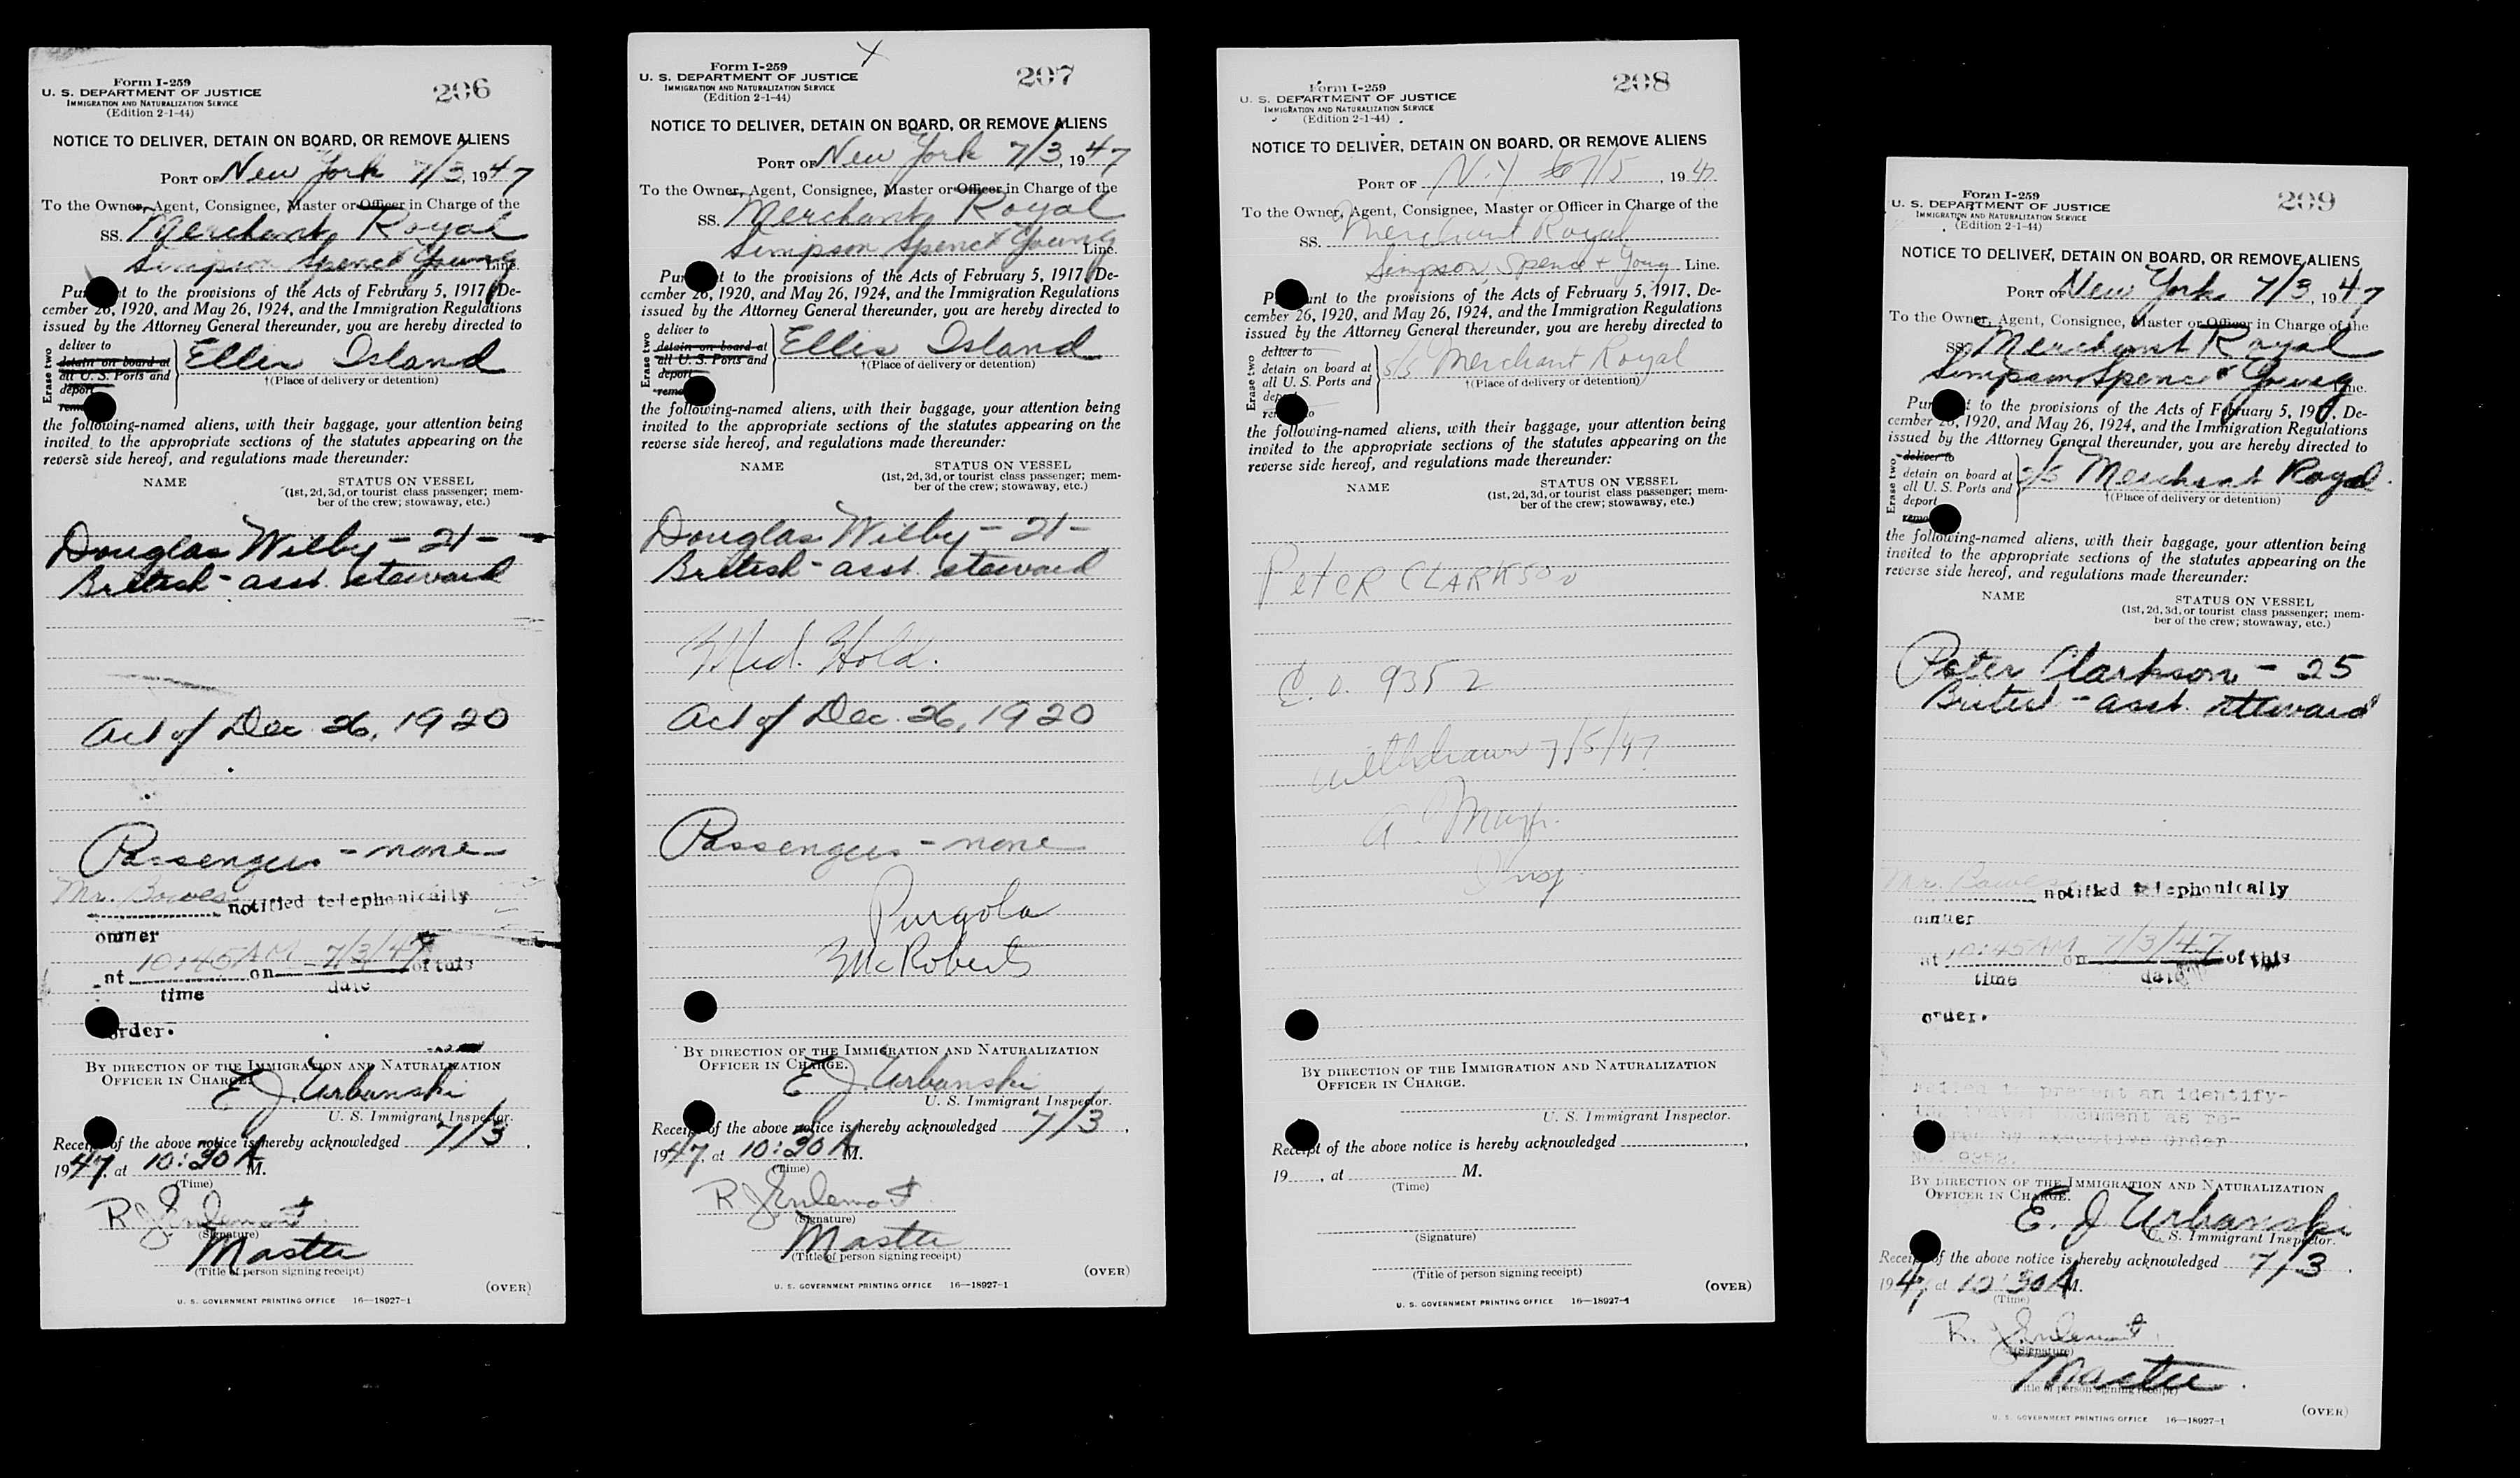 Form I-259
U. S. DEPARTMENT OF JUSTICE
IMMIGRATION AND NATURALIZATION SERVICE
(Edition 2-1-44)
206
NOTICE TO DELIVER, DETAIN ON BOARD, OR REMOVE ALIENS
PORT OF New York 7/3, 1947
To the Owner, Agent, Consignee, Master or Officer in Charge of the
SS. Merchant Royal
Simpson Spence & Young Line.
Pursuant to the provisions of the Acts of February 5, 1917, De-
cember 26, 1920, and May 26, 1924, and the Immigration Regulations
issued by the Attorney General thereunder, you are hereby directed to
Erase two
deliver to
detain on board at
all U. S. Ports and
deport
Ellis Island
†(Place of delivery or detention)
the following-named aliens, with their baggage, your attention being
invited to the appropriate sections of the statutes appearing on the
reverse side hereof, and regulations made thereunder:
NAME STATUS ON VESSEL
(1st, 2d, 3d, or tourist class passenger; mem-
ber of the crew; stowaway, etc.)
Douglas Wilby - 21 -
British - asst. steward
Act of Dec 26, 1920
Passengers - none
Mr. Bowes notified telephonically
owner
at 10:45 AM on 7/3/47 of this
time date
order.
BY DIRECTION OF THE IMMIGRATION AND NATURALIZATION
OFFICER IN CHARGE.
E J. Urbanski
U. S. Immigrant Inspector.
Receipt of the above notice is hereby acknowledged 7/3,
1947, at 10:30 A M.
(Time)
R
(Signature)
Master
(Title of person signing receipt)
(OVER)
U. S. GOVERNMENT PRINTING OFFICE 16—18927-1
X
Form I-259
U. S. DEPARTMENT OF JUSTICE
IMMIGRATION AND NATURALIZATION SERVICE
(Edition 2-1-44)
207
NOTICE TO DELIVER, DETAIN ON BOARD, OR REMOVE ALIENS
PORT OF New York 7/3, 1947
To the Owner, Agent, Consignee, Master or Officer in Charge of the
SS. Merchant Royal
Simpson Spence & Young Line.
Pursuant to the provisions of the Acts of February 5, 1917, De-
cember 26, 1920, and May 26, 1924, and the Immigration Regulations
issued by the Attorney General thereunder, you are hereby directed to
Erase two
deliver to
detain on board at
all U. S. Ports and
deport
Ellis Island
†(Place of delivery or detention)
the following-named aliens, with their baggage, your attention being
invited to the appropriate sections of the statutes appearing on the
reverse side hereof, and regulations made thereunder:
NAME STATUS ON VESSEL
(1st, 2d, 3d, or tourist class passenger; mem-
ber of the crew; stowaway, etc.)
Douglas Wilby - 21 -
British - asst. steward
Med. Hold.
Act of Dec. 26, 1920
Passengers - none
Purgola
McRoberts
BY DIRECTION OF THE IMMIGRATION AND NATURALIZATION
OFFICER IN CHARGE.
E J. Urbanski
U. S. Immigrant Inspector.
Receipt of the above notice is hereby acknowledged 7/3,
1947, at 10:30 A M.
(Time)
R
(Signature)
Master
(Title of person signing receipt)
(OVER)
U. S. GOVERNMENT PRINTING OFFICE 16—18927-1
Form I-259
U. S. DEPARTMENT OF JUSTICE
IMMIGRATION AND NATURALIZATION SERVICE
(Edition 2-1-44)
208
NOTICE TO DELIVER, DETAIN ON BOARD, OR REMOVE ALIENS
PORT OF N.Y 7/5, 1947
To the Owner, Agent, Consignee, Master or Officer in Charge of the
SS. Merchant Royal
Simpson, Spence + Young Line.
Pursuant to the provisions of the Acts of February 5, 1917, De-
cember 26, 1920, and May 26, 1924, and the Immigration Regulations
issued by the Attorney General thereunder, you are hereby directed to
Erase two
deliver to
detain on board at
all U. S. Ports and
deport
s/s Merchant Royal
†(Place of delivery or detention)
the following-named aliens, with their baggage, your attention being
invited to the appropriate sections of the statutes appearing on the
reverse side hereof, and regulations made thereunder:
NAME STATUS ON VESSEL
(1st, 2d, 3d, or tourist class passenger; mem-
ber of the crew; stowaway, etc.)
PeteR CLARKSON
E.O. 9352
withdrawn 7/5/47
A.
Insp.
BY DIRECTION OF THE IMMIGRATION AND NATURALIZATION
OFFICER IN CHARGE.
U. S. Immigrant Inspector.
Receipt of the above notice is hereby acknowledged
19 , at M.
(Time)
(Signature)
(Title of person signing receipt)
(OVER)
U. S. GOVERNMENT PRINTING OFFICE 16—18927-1
Form I-259
U. S. DEPARTMENT OF JUSTICE
IMMIGRATION AND NATURALIZATION SERVICE
(Edition 2-1-44)
209
NOTICE TO DELIVER, DETAIN ON BOARD, OR REMOVE ALIENS
PORT OF New York 7/3, 1947
To the Owner, Agent, Consignee, Master or Officer in Charge of the
SS. Merchant Royal
Simpson Spence & Young Line.
Pursuant to the provisions of the Acts of February 5, 1917, De-
cember 26, 1920, and May 26, 1924, and the Immigration Regulations
issued by the Attorney General thereunder, you are hereby directed to
Erase two
deliver to
detain on board at
all U. S. Ports and
deport
s/s Merchant Royal.
†(Place of delivery or detention)
the following-named aliens, with their baggage, your attention being
invited to the appropriate sections of the statutes appearing on the
reverse side hereof, and regulations made thereunder:
NAME STATUS ON VESSEL
(1st, 2d, 3d, or tourist class passenger; mem-
ber of the crew; stowaway, etc.)
Peter Clarkson - 25
British - asst. steward
Mr. Bowes notified telephonically
owner
at 10:45 AM on 7/3/47 of this
time date
order.
Failed to present an identify-
ing travel document as re-
quired by Executive Order
No. 9352.
BY DIRECTION OF THE IMMIGRATION AND NATURALIZATION
OFFICER IN CHARGE.
E. J Urbanski
U. S. Immigrant Inspector.
Receipt of the above notice is hereby acknowledged 7/3.
1947, at 10:30 A M.
(Time)
R.
(Signature)
Master.
(Title of person signing receipt)
(OVER)
U. S. GOVERNMENT PRINTING OFFICE 16—18927-1